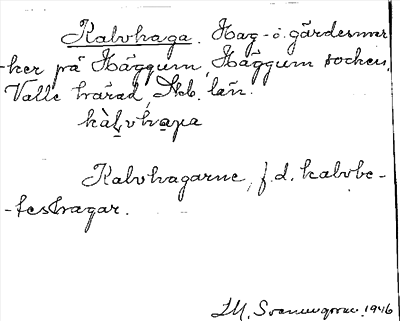 Kalvhaga. Hag- o. gärdesmar-
-ker på Häggum, Häggum socken,
Valle härad, Skb. län.
kàlvhaga
Kalvhagarne, f.d. kalvbe-
-teshagar.
1946